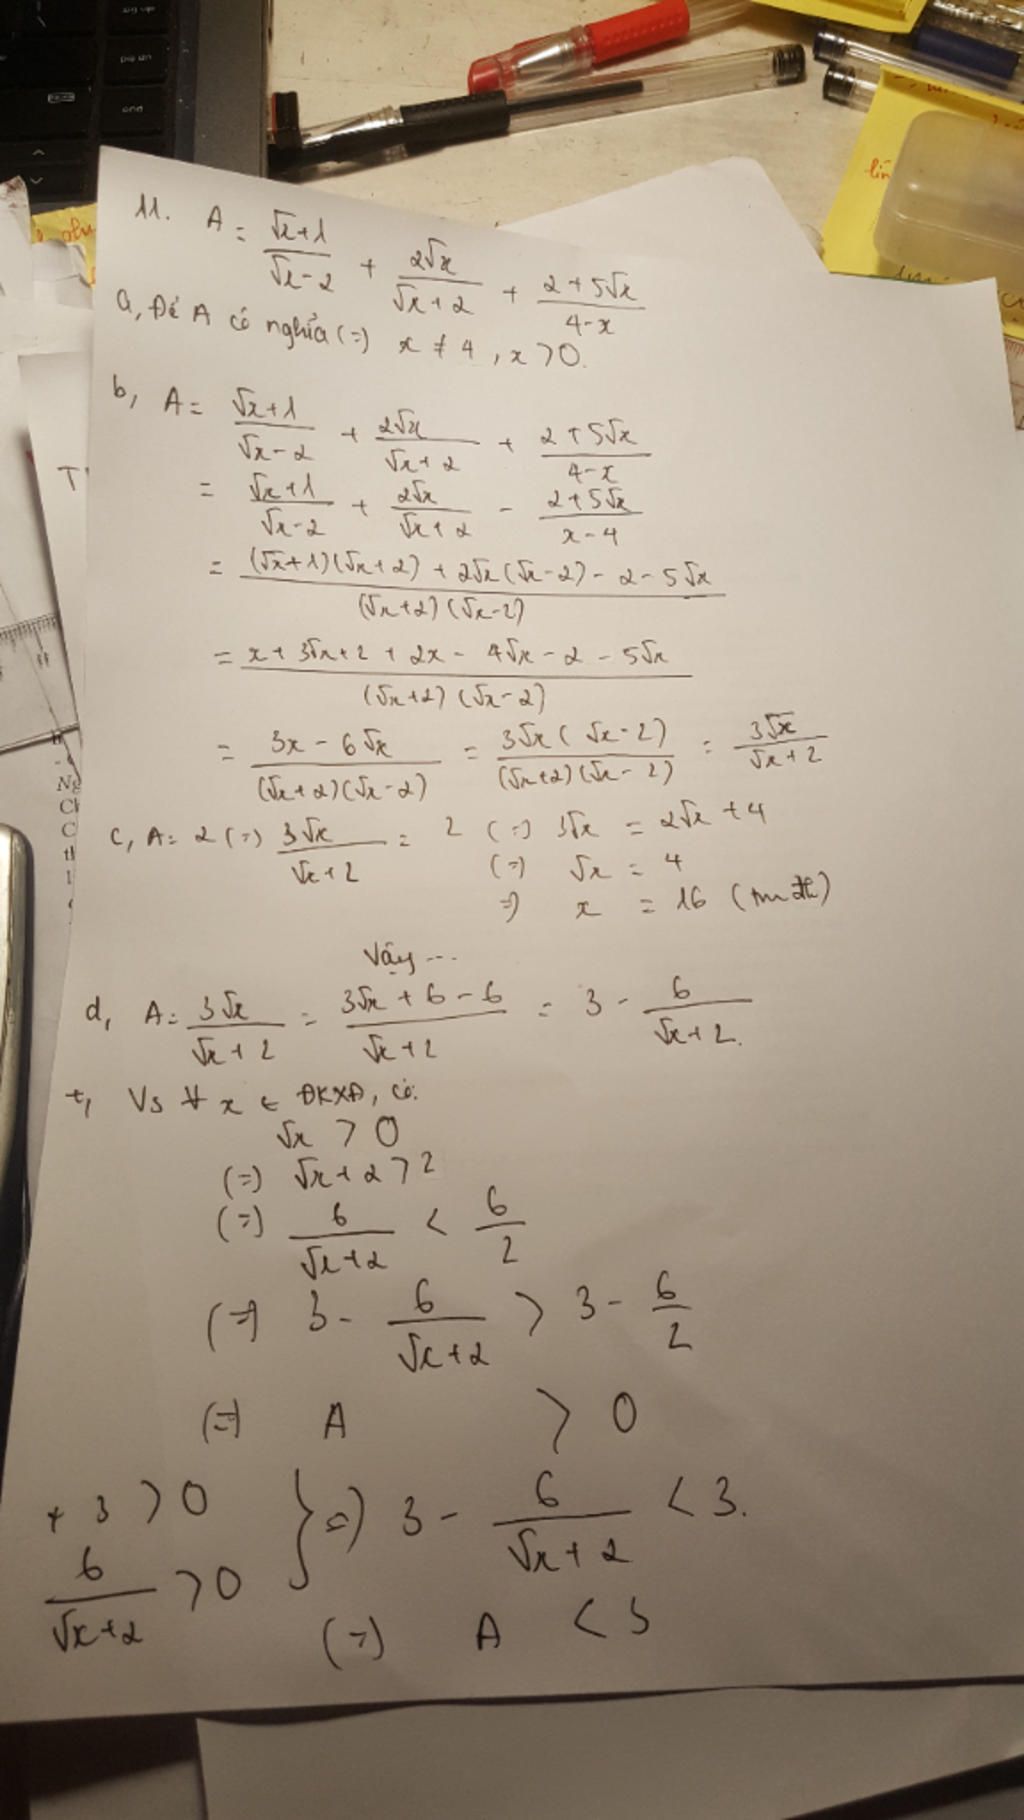 11. A = (√x+1)/(√x-2) + 2√x/(√x+2) + (2+5√x)/(4-x)
a, Để A có nghĩa (=) x ≠ 4, x > 0.
b, A = (√x+1)/(√x-2) + 2√x/(√x+2) + (2+5√x)/(4-x)
= (√x+1)/(√x-2) + 2√x/(√x+2) - (2+5√x)/(x-4)
= ((√x+1)(√x+2) + 2√x(√x-2) - 2 - 5√x)/((√x+2)(√x-2))
= (x + 3√x + 2 + 2x - 4√x - 2 - 5√x)/((√x+2)(√x-2))
= (3x - 6√x)/((√x+2)(√x-2)) = 3√x(√x-2)/((√x+2)(√x-2)) = 3√x/(√x+2)
c, A = 2 (=) 3√x/(√x+2) = 2 (=) 3√x = 2√x + 4
(=) √x = 4
=) x = 16 (tm đk)
Vậy ...
d, A = 3√x/(√x+2) = (3√x + 6 - 6)/(√x+2) = 3 - 6/(√x+2).
+, Vs ∀ x ∈ ĐKXĐ, có:
√x > 0
(=) √x + 2 > 2
(=) 6/(√x+2) < 6/2
(=) 3 - 6/(√x+2) > 3 - 6/2
(=) A > 0
+ 3 > 0
6/(√x+2) > 0 } =) 3 - 6/(√x+2) < 3.
(=) A < 3
pg un
end